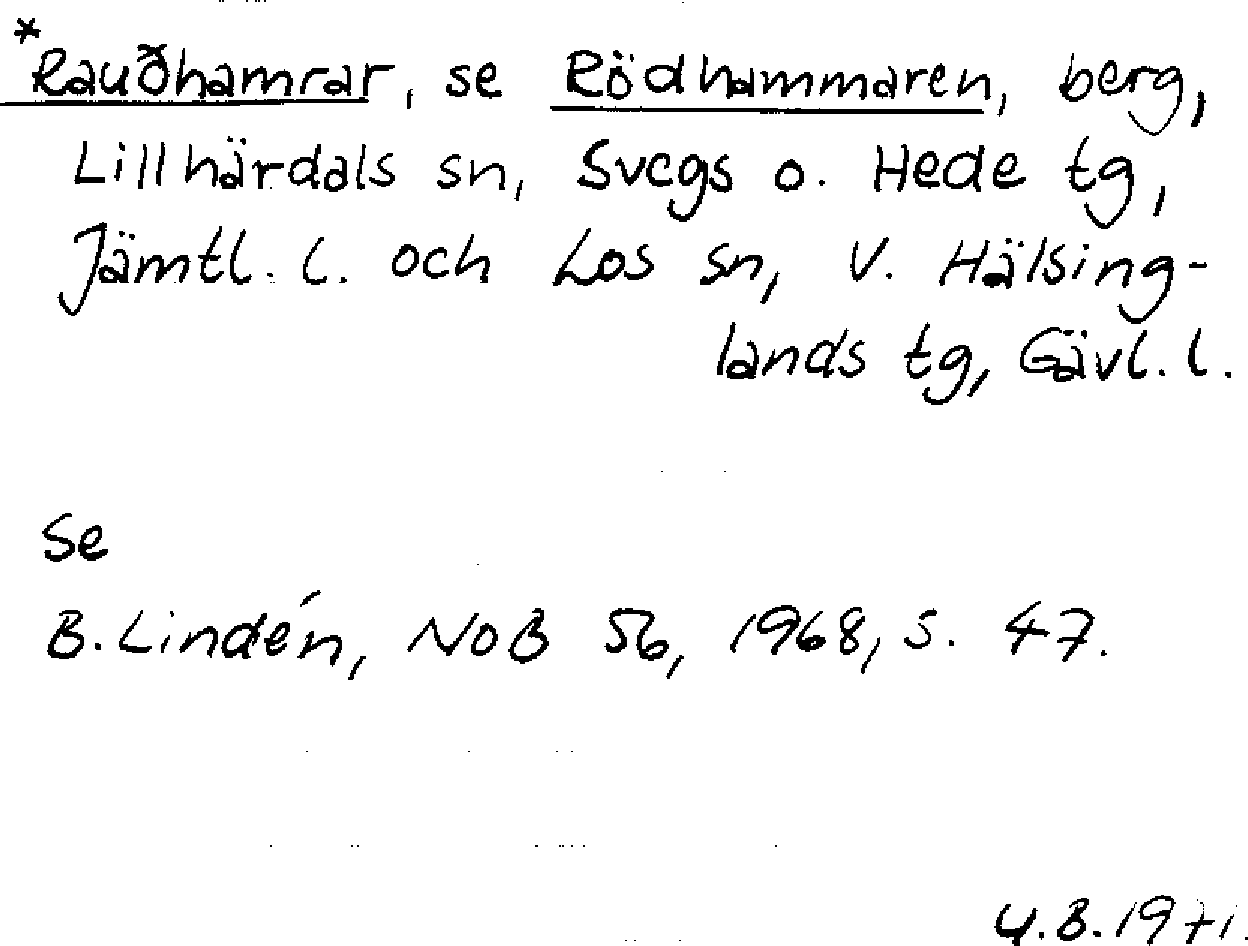 *Rauðhamrar, se Rödhammaren, berg,
Lillhärdals sn, Svegs o. Hede tg,
Jämtl. l. och Los sn, V. Hälsing-
lands tg, Gävl. l.
Se
B. Lindén, NoB 56, 1968, s. 47.
U.B. 1971.